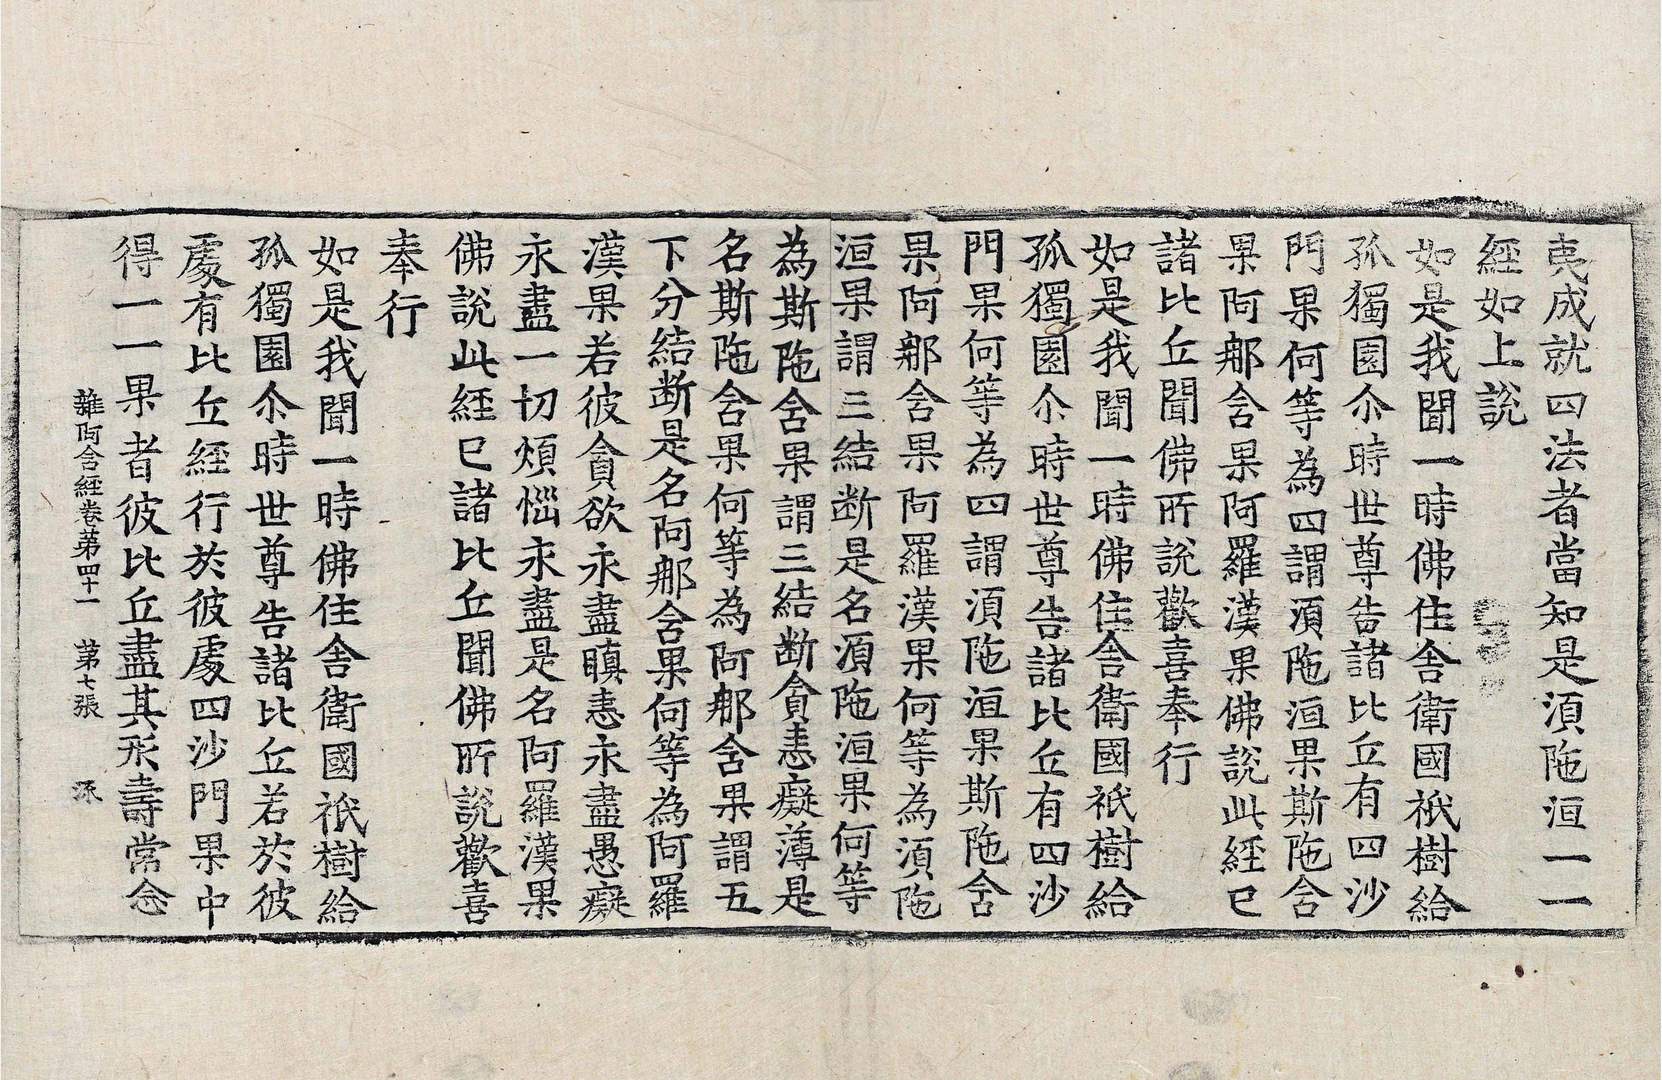 夷成就四法者當知是湏陁洹一一
經如上說
如是我聞一時佛住舍衛國祇樹給
孤獨園尒時世尊告諸比丘有四沙
門果何等為四謂湏陁洹果斯陁含
果阿那含果阿羅漢果佛說此經已
諸比丘聞佛所說歡喜奉行
如是我聞一時佛住舍衛國祇樹給
孤獨園尒時世尊告諸比丘有四沙
門果何等為四謂湏陁洹果斯陁含
果阿那含果阿羅漢果何等為湏陁
洹果謂三結断是名湏陁洹果何等
為斯陁含果謂三結断貪恚癡薄是
名斯陁含果何等為阿那含果謂五
下分結断是名阿那含果何等為阿羅
漢果若彼貪欲永盡瞋恚永盡愚癡
永盡一切煩惱永盡是名阿羅漢果
佛說此經已諸比丘聞佛所說歡喜
奉行
如是我聞一時佛住舍衛國祇樹給
孤獨園尒時世尊告諸比丘若於彼
處有比丘經行於彼處四沙門果中
得一一果者彼比丘盡其形壽常念
雜阿含經卷第四十一 第七張 流